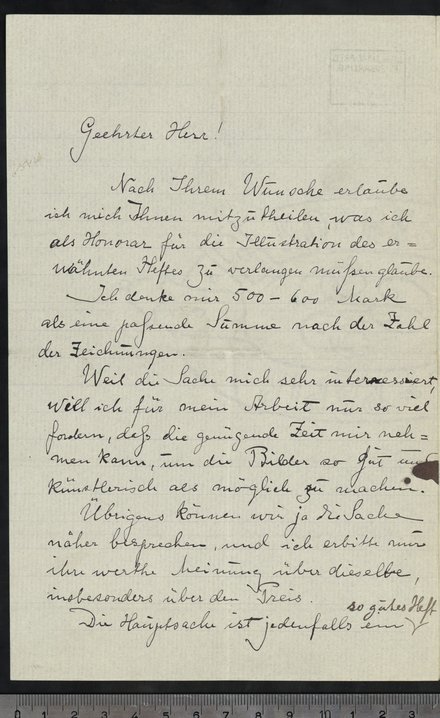 Geehrter Herr!
Nach Ihrem Wunsche erlaube
ich mich Ihnen mitzutheilen, was ich
als Honorar für die Illustration des er=
wähnten Heftes zu verlangen müßen glaube.
Ich denke mir 500 - 600 Mark
als eine paßende Summe nach der Zahl
der Zeichnungen.
Weil die Sache mich sehr interessiert,
will ich für mein Arbeit nur so viel
fordern, daß die genügende Zeit mir neh=
men kann, um die Bilder so gut und
künstlerisch als möglich zu machen.
Übrigens können wir ja die Sache
näher besprechen, und ich erbitte mir
ihre werthe Meinung über dieselbe,
insbesonders über den Preis.
Die Hauptsache ist jedenfalls ein so gutes Heft